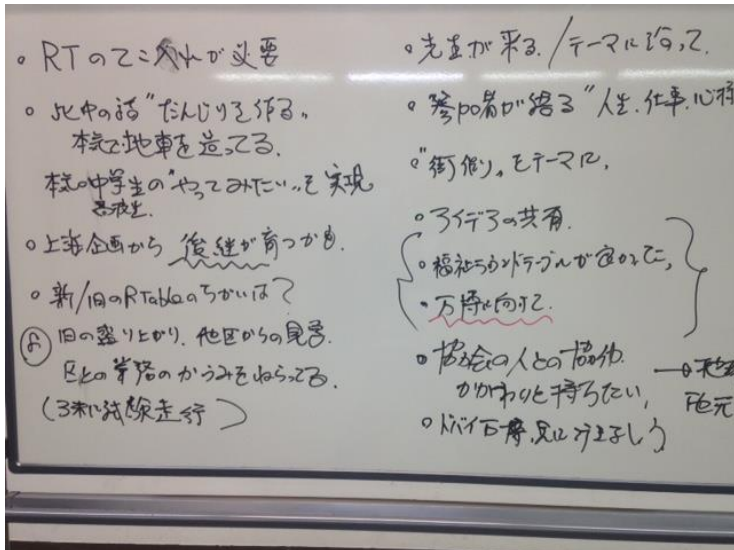 ・RTのてこ入れが必要
・北中の話"だんじりを作る"
本気で地車を造ってる.
本気の中学生の"やってみたい"を実現
高校生.
・上海企画から 後継が育つかも.
・新/旧のRTableのちがいは?
旧の盛り上がり. 他区からの見学.
区との業務のからみをねらってる.
(3末に試験走行)
・先生が来る./テーマに沿って.
・参加者が語る"人生.仕事.心
・"街作り"をテーマに.
・アイデアの共有.
・福祉ラウンドテーブルが
・万博に向けて.
・協会の人との協働.
かかわりを持ちたい,
・ドバイ万博,見に行きましょう